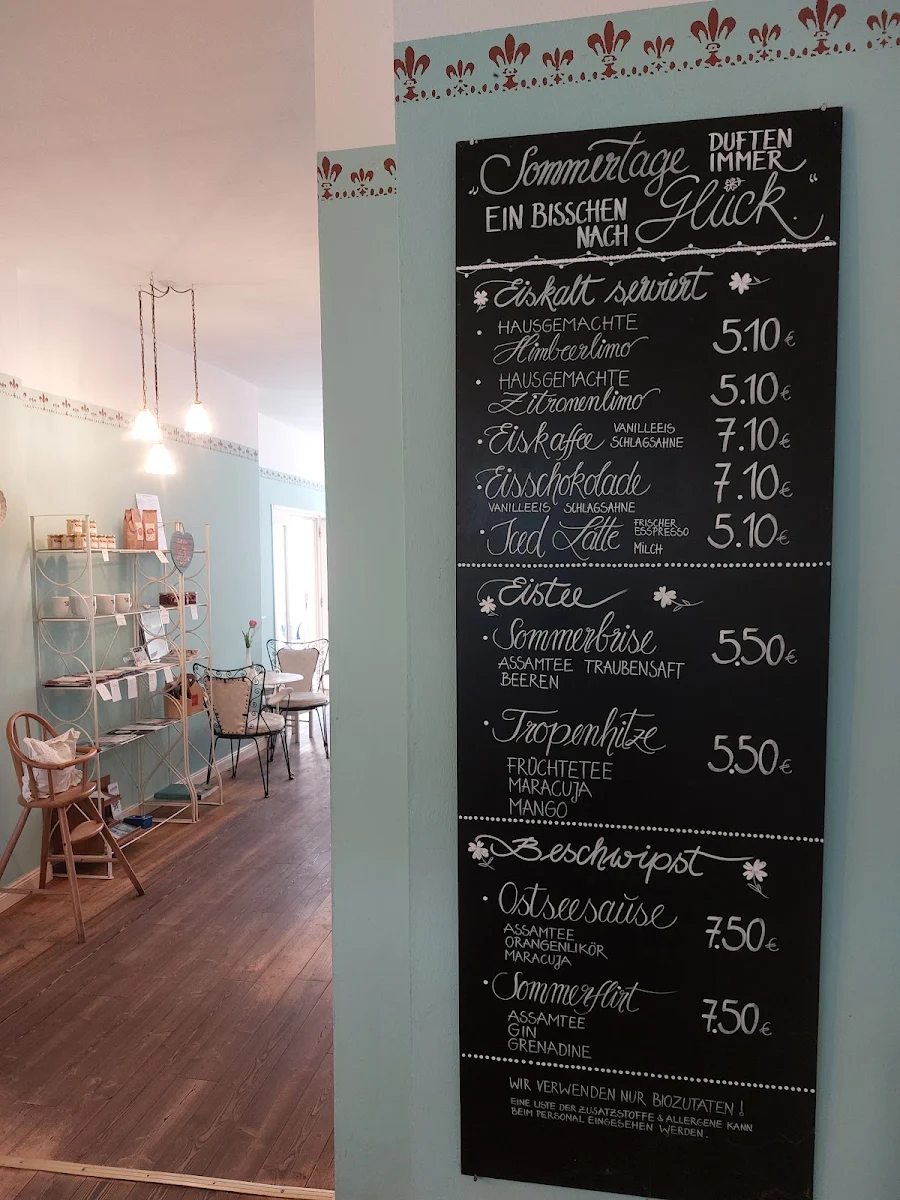 „Sommertage DUFTEN IMMER
EIN BISSCHEN NACH Glück.“
Eiskalt serviert
• HAUSGEMACHTE
Himbeerlimo 5.10€
• HAUSGEMACHTE
Zitronenlimo 5.10€
• Eiskaffee VANILLEEIS SCHLAGSAHNE 7.10€
• Eisschokolade 7.10€
VANILLEEIS SCHLAGSAHNE
• Iced Latte FRISCHER ESSPRESSO MILCH 5.10€
Eistee
• Sommerbrise 5.50€
ASSAMTEE TRAUBENSAFT
BEEREN
• Tropenhitze 5.50€
FRÜCHTETEE
MARACUJA
MANGO
Beschwipst
• Ostseesause 7.50€
ASSAMTEE
ORANGENLIKÖR
MARACUJA
• Sommerflirt 7.50€
ASSAMTEE
GIN
GRENADINE
WIR VERWENDEN NUR BIOZUTATEN!
EINE LISTE DER ZUSATZSTOFFE & ALLERGENE KANN
BEIM PERSONAL EINGESEHEN WERDEN.